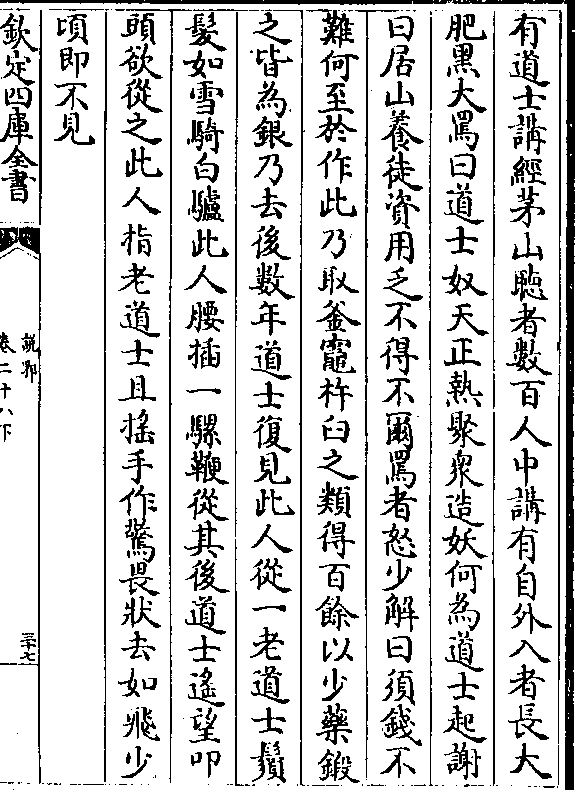 有道士講經茅山聽者數百人中講有自外入者長大
肥黑大罵曰道士奴天正熱聚衆造妖何為道士起謝
曰居山養徒資用乏不得不爾罵者怒少解曰須錢不
難何至於作此乃取釜竈杵臼之類得百餘以少藥鍛
之皆為銀乃去後數年道士復見此人從一老道士鬚
髮如雪騎白驢此人腰插一騾鞭從其後道士遙望叩
頭欲從之此人指老道士且搖手作驚畏狀去如飛少
頃即不見
欽定四庫全書
說郛
卷二十八下
三十七